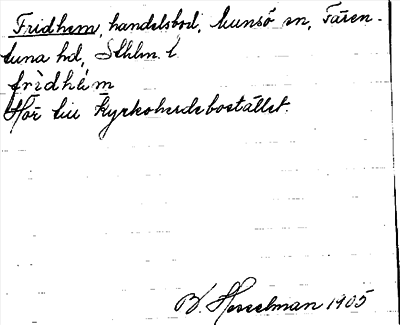 Fridhem, handelsbod, Munsö sn, Fären-
tuna hd, Sthlm. l.
frìdhém
Hör till Kyrkoherdebostället.
B. Hesselman 1905